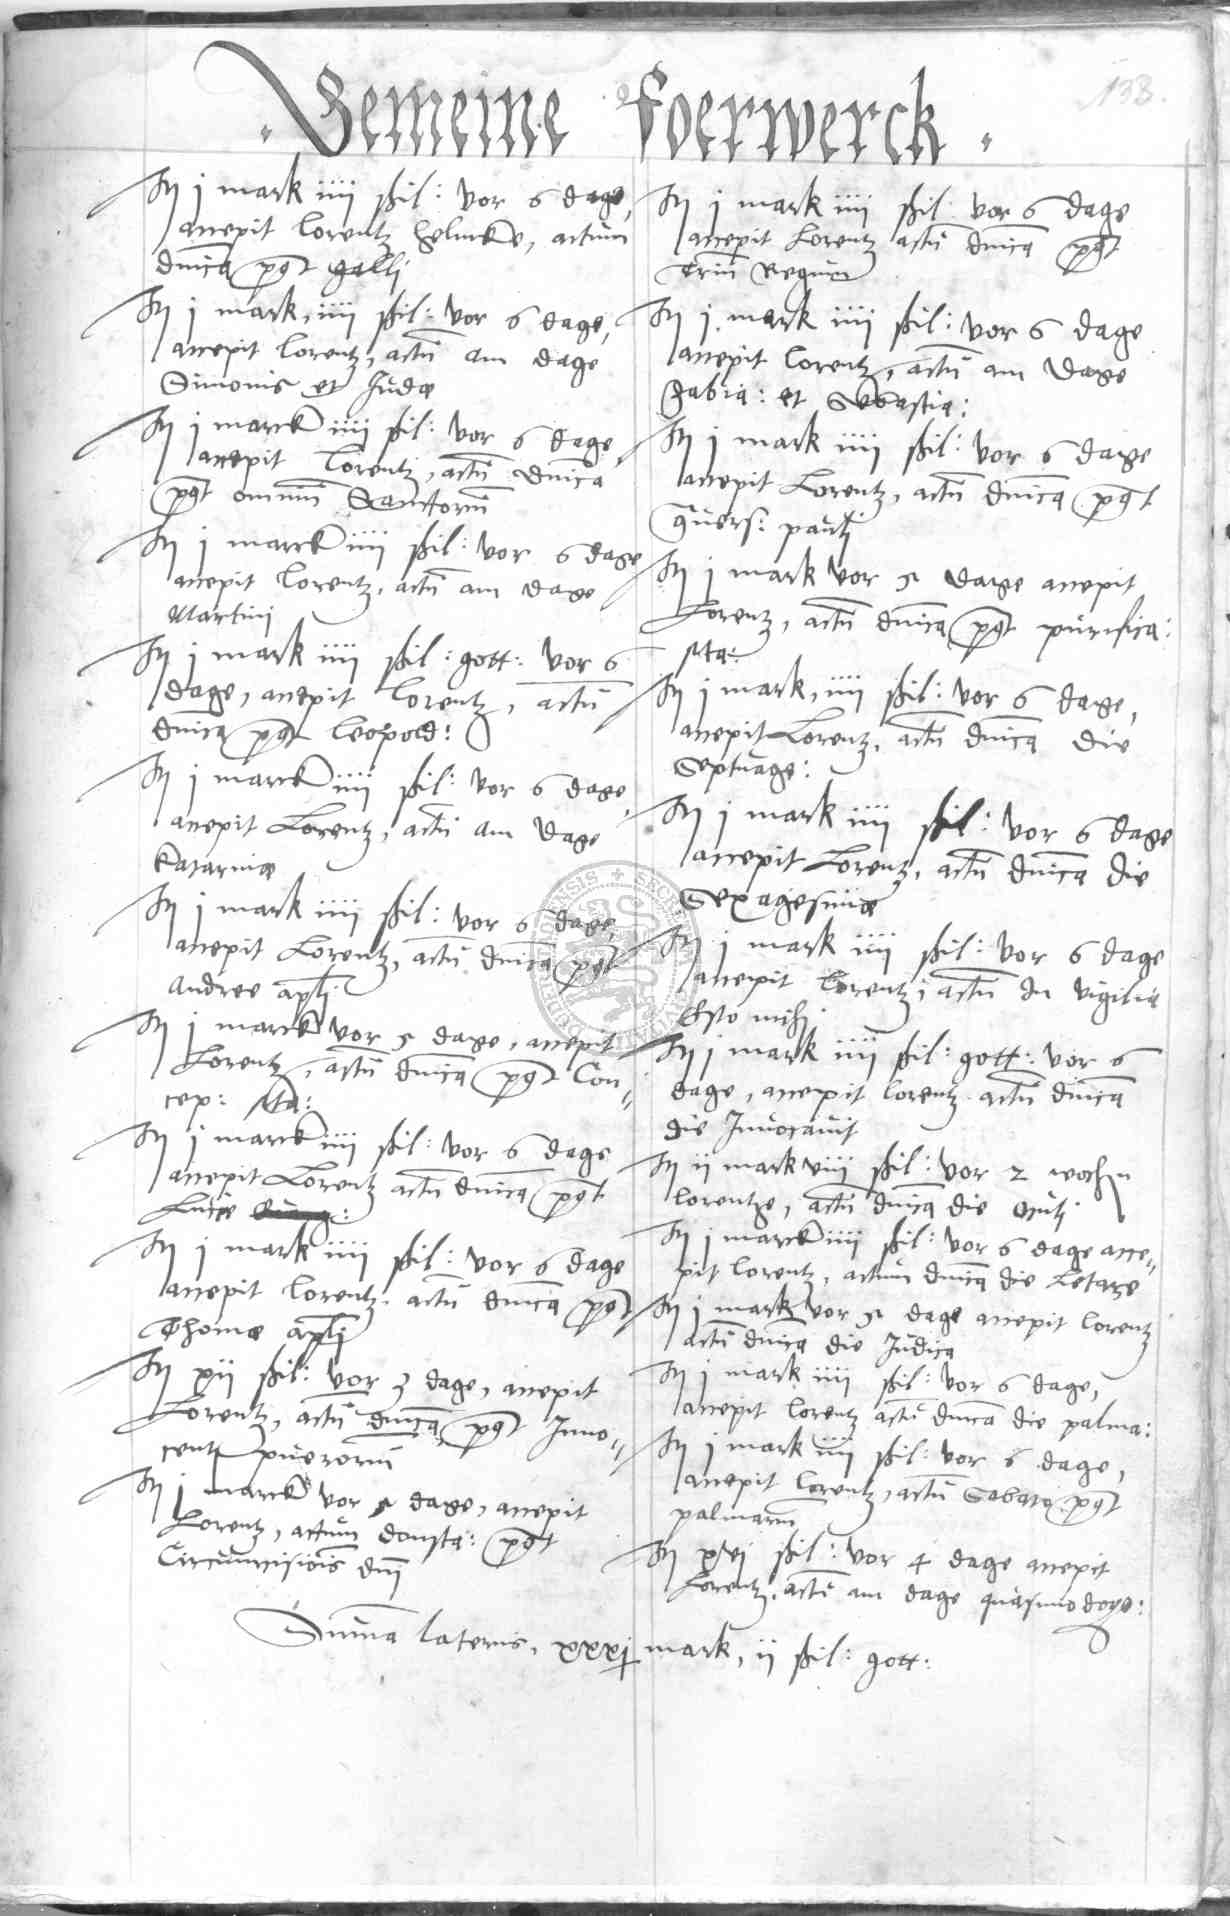 138.
Gemeine Foerwerck
It j mark iiii ßil: vor 6 dage,
accepit Lorentz Helmke, actum
dnica post Galli
It j mark, iiii ßil: vor 6 dage,
accepit Lorentz, actu am dage
Simonis et Judae
It j marck iiii ßil: vor 6 dage,
accepit Lorentz, actu dnica
post omniu Sanctoru
It j marck iiii ßil: vor 6 dage
accepit Lorentz, actu am dage
Martini
It j mark iiii ßil: gott: vor 6
dage, accepit Lorentz, actu
dnica post Leopold:
It j marck iiii ßil: vor 6 dage,
accepit Lorentz, actu am dage
Katarinae
It j mark iiii ßil: vor 6 dage,
accepit Lorentz, actu dnica post
Andree apli
It j marck vor 5 dage, accepit
Lorentz, actu dnica post Con=
cep: Ma:
It j marck iiii ßil: vor 6 dage
accepit Lorentz actu dnica post
Lucie
It j mark iiii ßil: vor 6 dage
accepit Lorentz, actu dnica post
Thomae apli
It xii ßil: vor 3 dage, accepit
Lorentz, actu dnica post Inno=
cent puerorum
It j marck vor 5 dage, accepit
Lorentz, actum donsta: post
Circumcisiois dni
It j mark iiii ßil: vor 6 dage
accepit Lorentz actu dnica post
Triu Regum
It j mark iiii ßil: vor 6 dage
accepit Lorentz, actu am dage
Fabia: et Sebastia:
It j mark iiii ßil: vor 6 dage
accepit Lorentz, actu dnica post
Convers: pauli
It j mark vor 5 dage accepit
Lorentz, actu dnica post purifica:
Ma:
It j mark, iiii ßil: vor 6 dage,
accepit Lorentz, actu dnica die
Septuage:
It j mark iiii ßil: vor 6 dage
accepit Lorentz, actu dnica die
Sexagesimae
It j mark iiii ßil: vor 6 dage
accepit Lorentz, actu in vigilia
Esto mihi
It j mark iiii ßil: gott: vor 6
dage, accepit Lorentz actu dnica
die Invocavit
It ii mark viii ßil: vor 2 wochn
Lorentze, actu dnica die Oculi
It j marck iiii ßil: vor 6 dage acce=
pit Lorentz, actum dnica die Letare
It j mark vor 5 dage accepit Lorentz
actu dnica die Judica
It j mark iiii ßil: vor 6 dage,
accepit Lorentz actu dnica die palma:
It j mark iiii ßil: vor 6 dage,
accepit Lorentz, actu Sabato post
palmaru
It xvi ßil: vor 4 dage accepit
Lorentz, actu am dage quasimodoge:
Suma lateris, xxxj mark, ii ßil: gott: